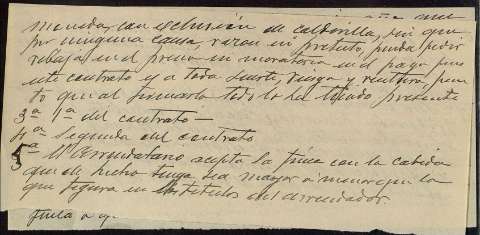 moneda, con esclusión de calderilla, sin que
por ninguna causa, razon ni pretesto, pueda pedir
rebaja en el precio ni moratoria en el pago pues
este contrato es a toda suerte, riesgo y ventura, pues
to que al firmarlo todo lo ha tenido presente
3ª 1ª del contrato—
4ª Segunda del contrato
5ª El Arrendatario acepta la finca con la cabida
que de hecho tenga sea mayor ó menor que la
que figura en los titulos del arrendador.